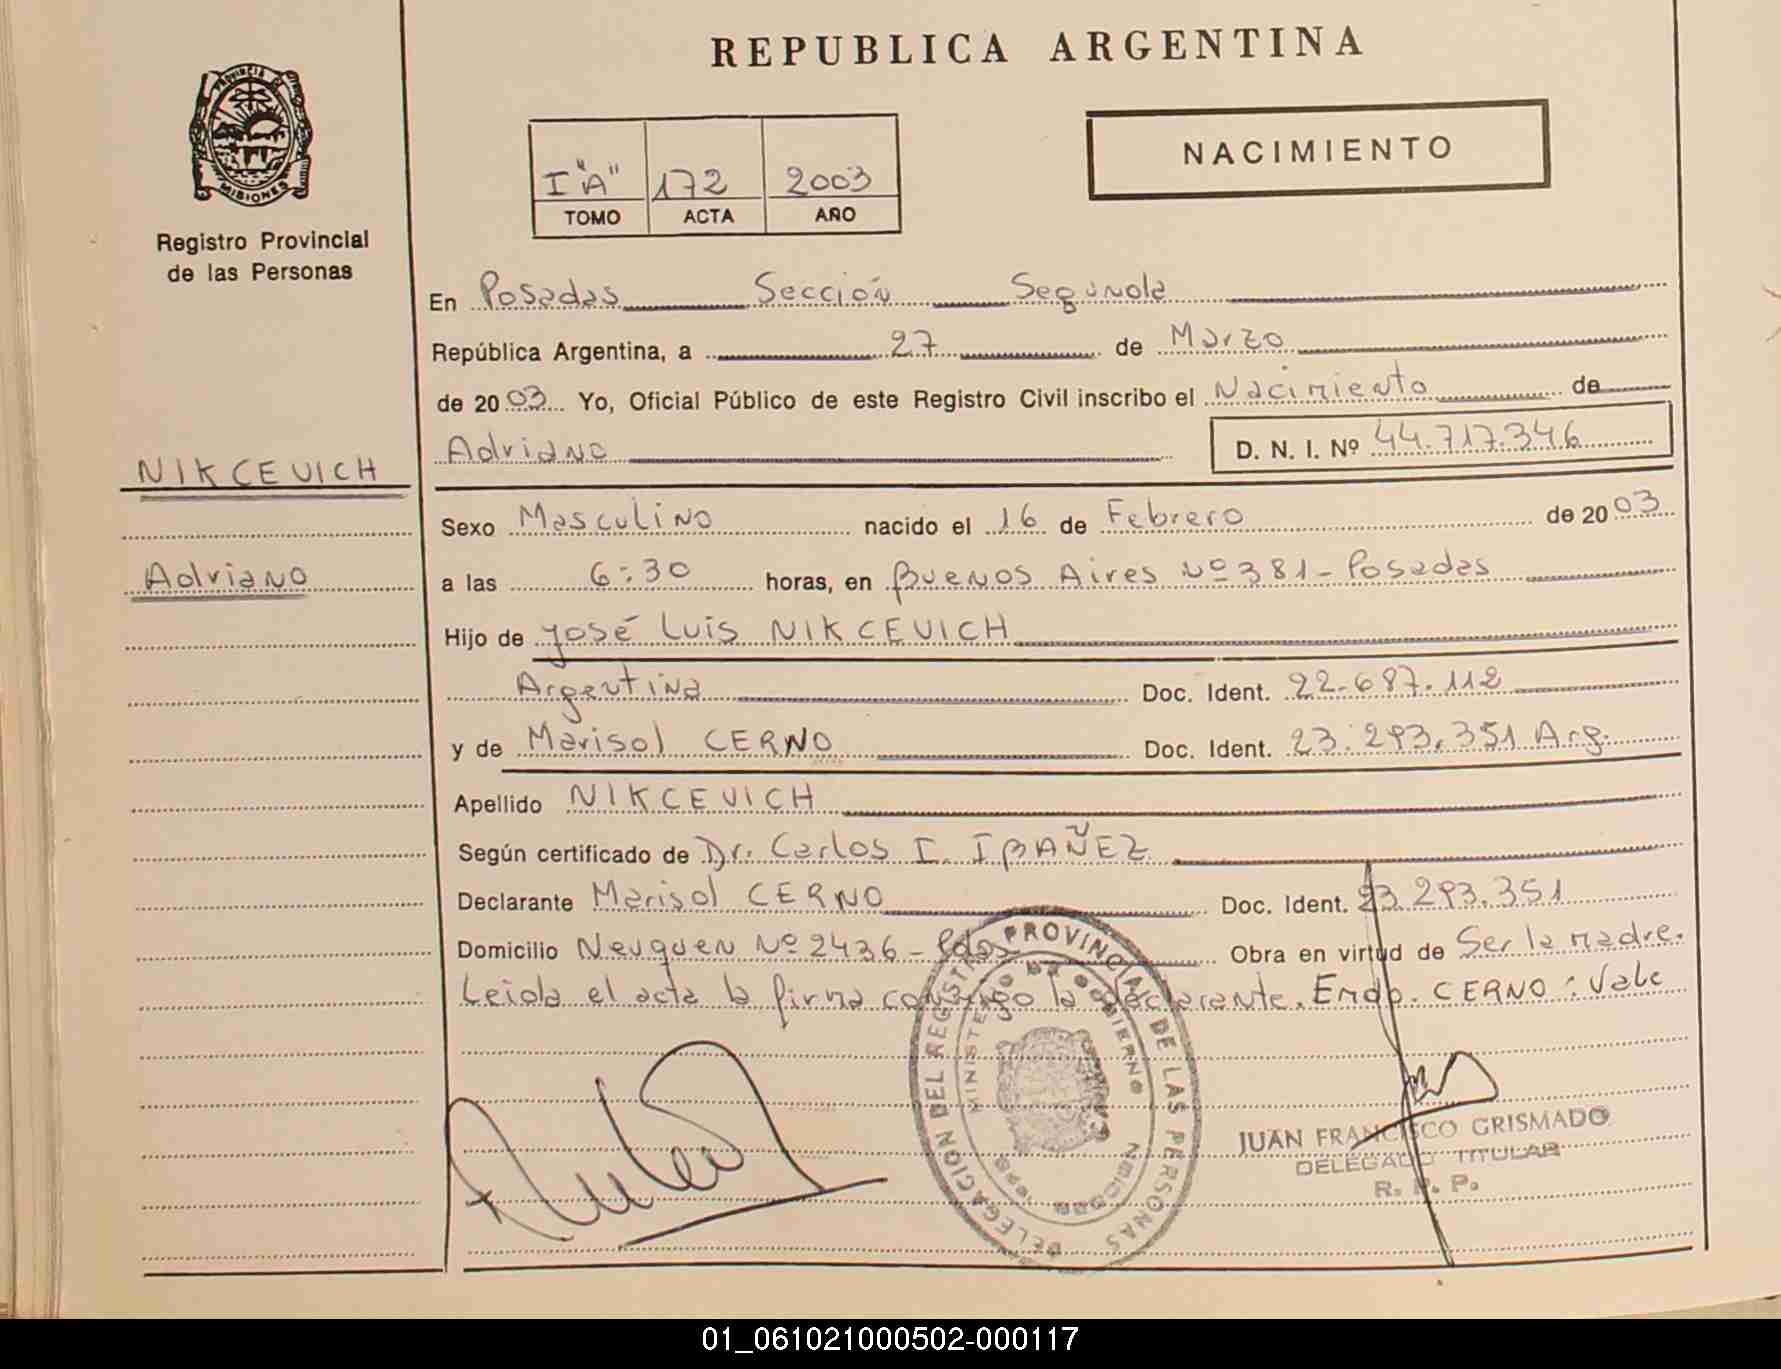 REPUBLICA ARGENTINA
PROVINCIA DE
MISIONES
Registro Provincial
de las Personas
I "A" 172 2003
TOMO ACTA AÑO
NACIMIENTO
En Posadas Sección Segunda
República Argentina, a 27 de Marzo
de 2003 Yo, Oficial Público de este Registro Civil inscribo el Nacimiento de
Adriano D. N. I. Nº 44.717.346
NIKCEVICH
Adriano
Sexo Masculino nacido el 16 de Febrero de 2003
a las 6:30 horas, en Buenos Aires Nº 381 - Posadas
Hijo de José Luis NIKCEVICH
Argentina Doc. Ident. 22.687.112
y de Marisol CERNO Doc. Ident. 23.293.351 Arg.
Apellido NIKCEVICH
Según certificado de Dr. Carlos I. IBAÑEZ
Declarante Marisol CERNO Doc. Ident. 23.293.351
Domicilio Neuquen Nº 2436 - Pdas Obra en virtud de Ser la madre.
Leida el acta la firma conmigo la declarante. Emdo. CERNO: Vale
DELEGACION DEL REGISTRO PROVINCIAL DE LAS PERSONAS
MINISTERIO DE GOBIERNO
JUAN FRANCISCO GRISMADO
DELEGADO TITULAR
R. P. P.
01_061021000502-000117